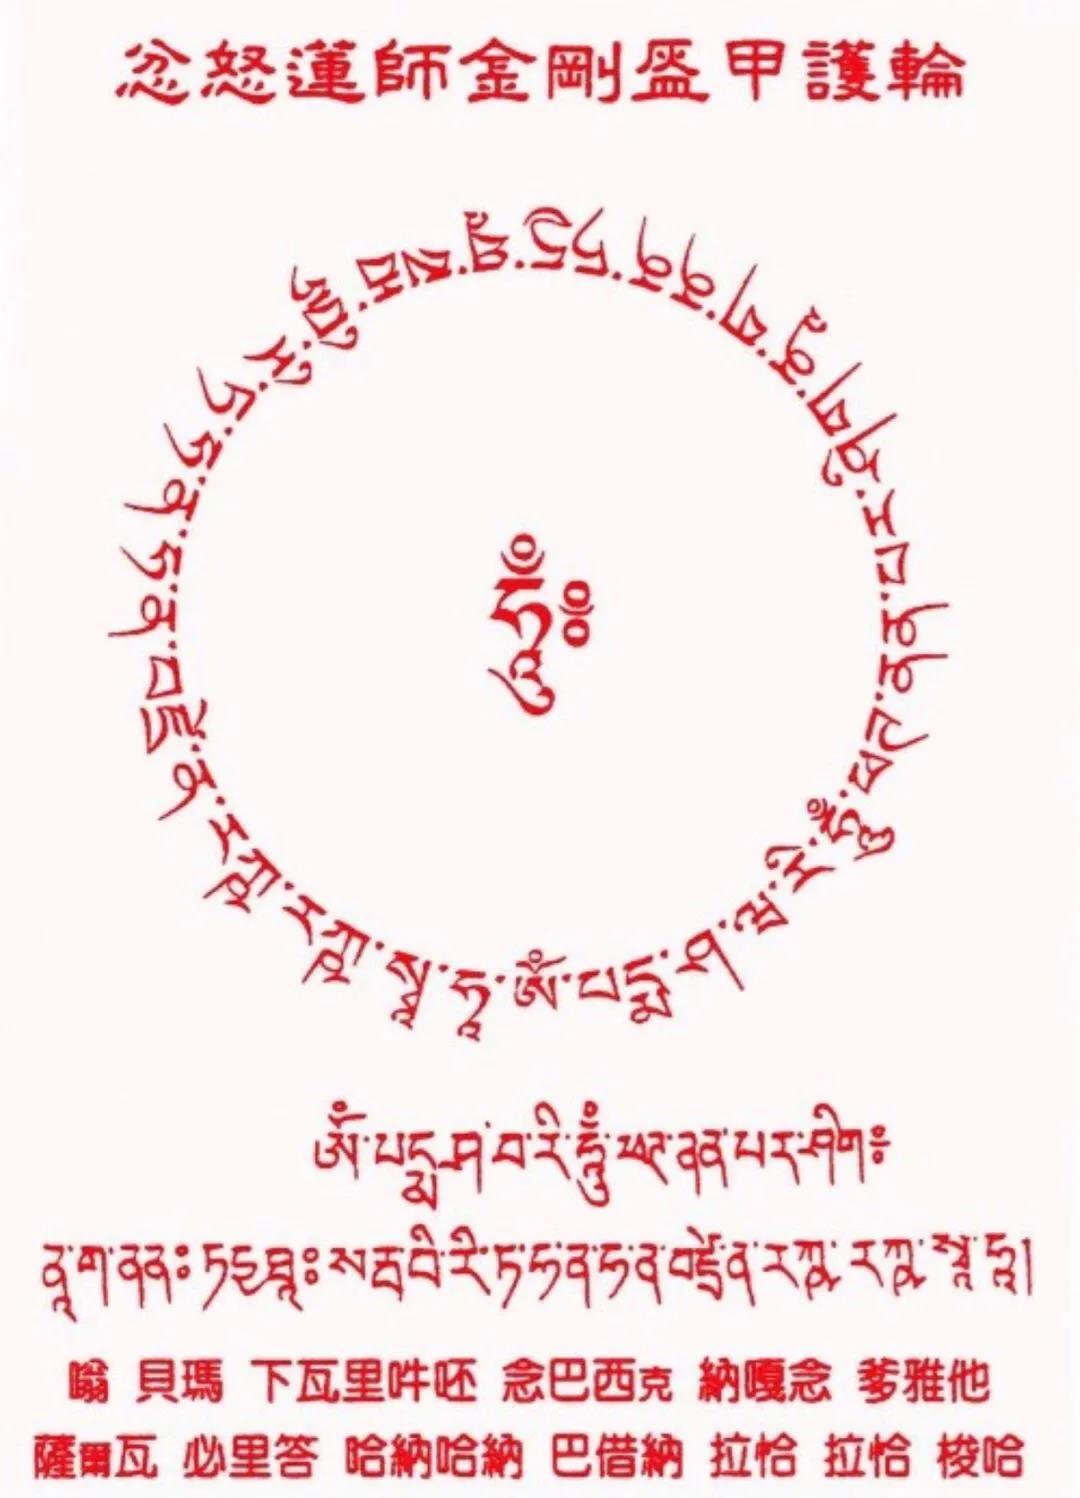 忿怒蓮師金剛盔甲護輪
ཨོཾ་པདྨ་ཤ་བ་རི་ཧཱུྃ་ཕཊ་ནན་པར་ཤིག་ནཱ་ག་ནན་ཏདྱཐཱ་སརྦ་བི་རི་ཏ་ཧ་ན་ཧ་ན་བཛྲེ་ན་རཀྵ་རཀྵ་སྭཱ་ཧཱ
ཧཱུྃ༔
ཨོཾ་པདྨ་ཤ་བ་རི་ཧཱུྃ་ཕཊ་ནན་པར་ཤིག༔
ནཱ་ག་ནན༔ཏདྱཐཱ༔སརྦ་བི་རི་ཏ་ཧ་ན་ཧ་ན་བཛྲེ་ན་རཀྵ་རཀྵ་སྭཱ་ཧཱ།
嗡 貝瑪 下瓦里吽呸 念巴西克 納嘎念 爹雅他
薩爾瓦 必里答 哈納哈納 巴借納 拉恰 拉恰 梭哈